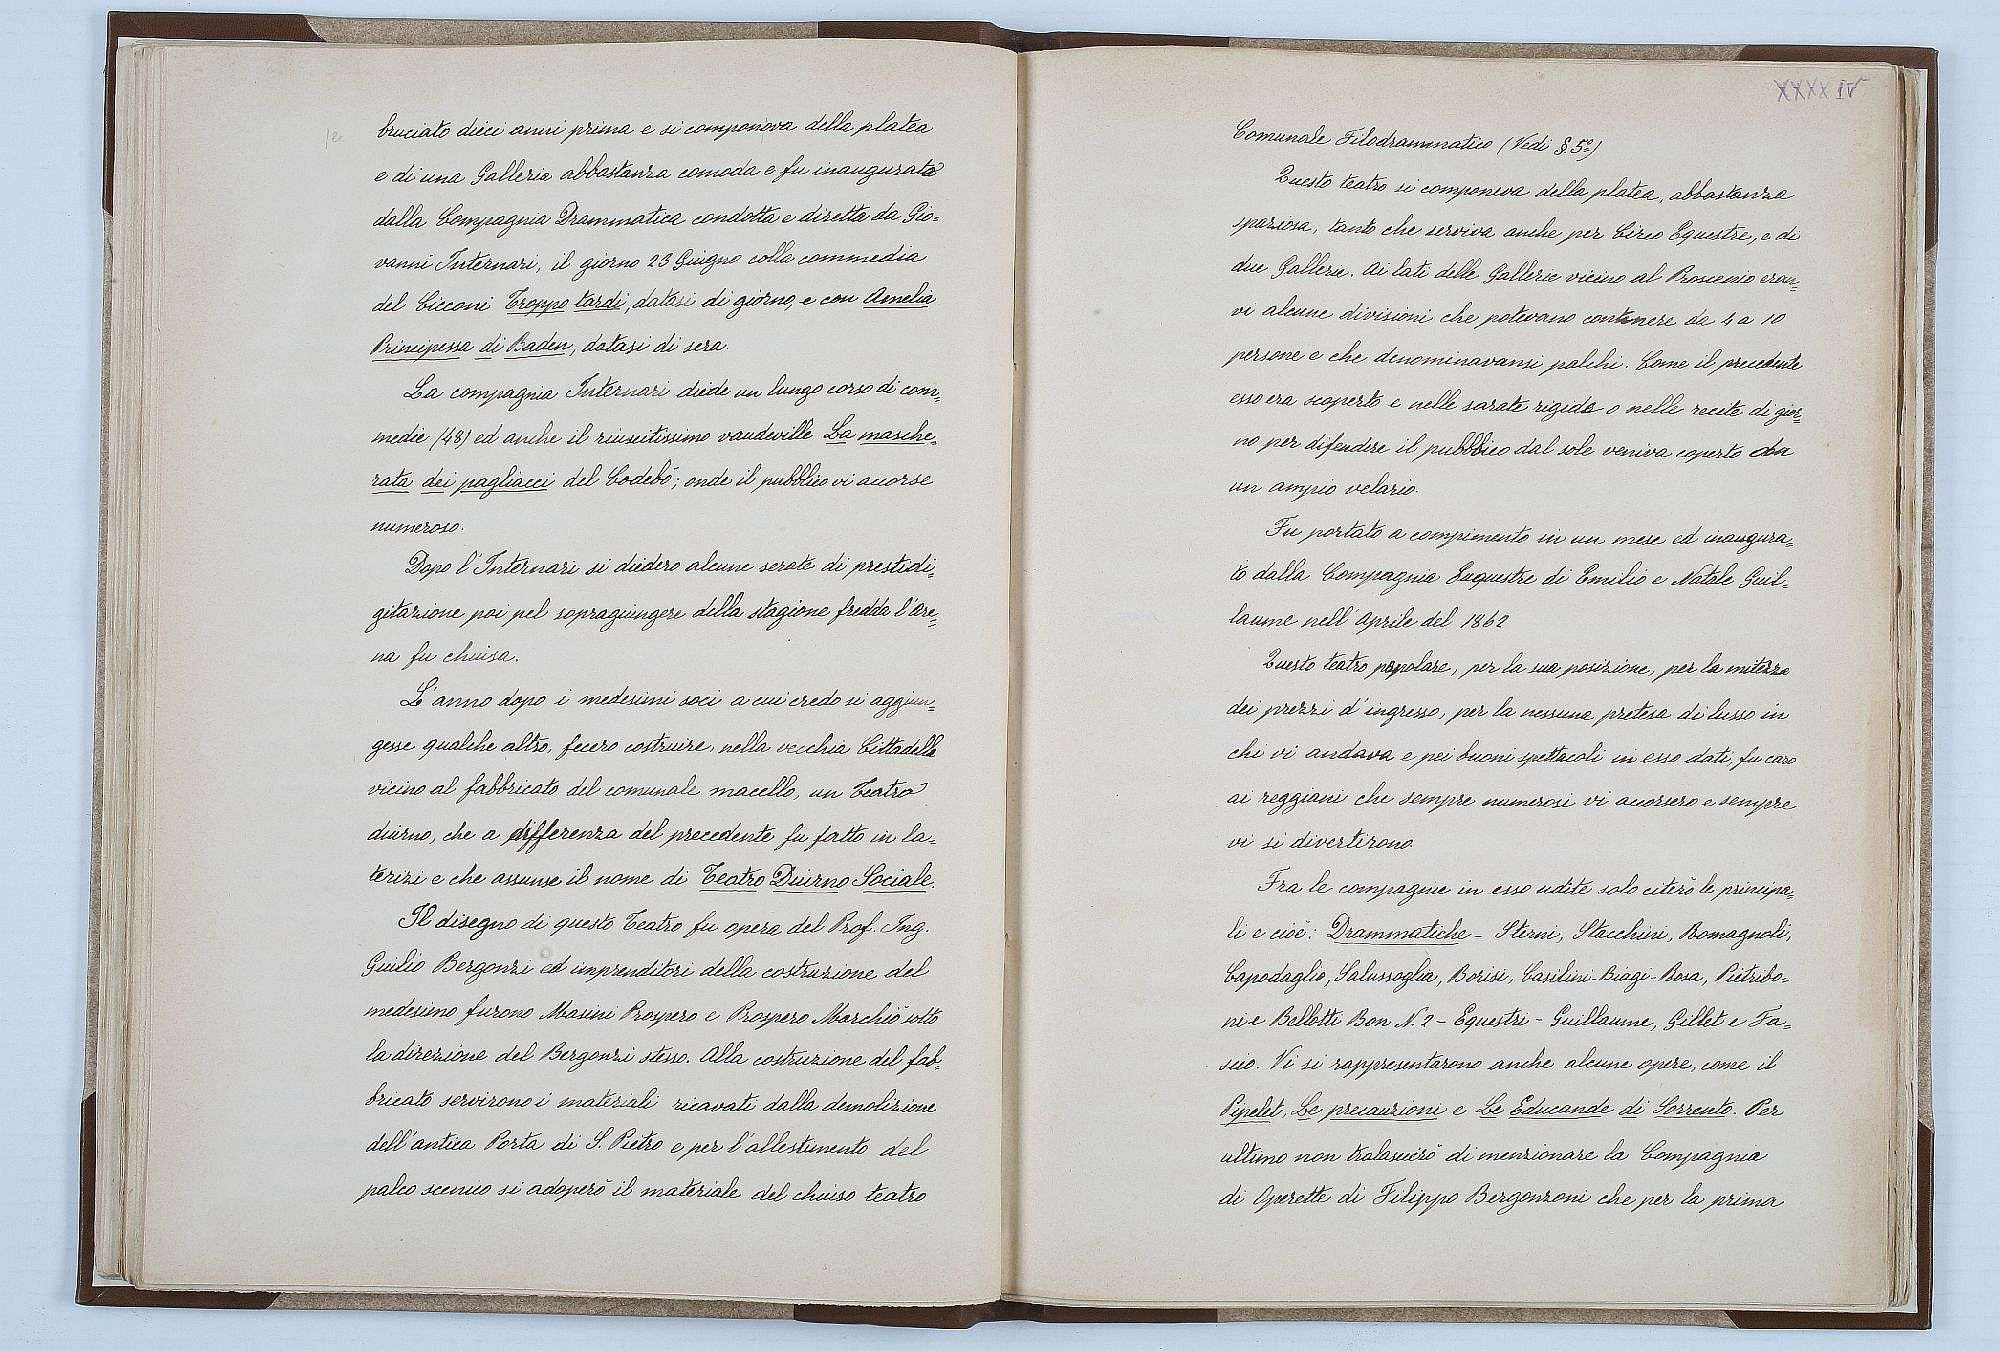 bruciato dieci anni prima e si componeva della platea
e di una Galleria abbastanza comoda e fu inaugurata
dalla Compagnia Drammatica condotta e diretta da Gio-
vanni Internari, il giorno 23 Giugno colla commedia
del Cicconi Troppo tardi, datasi di giorno, e con Amelia
Principessa di Baden, datasi di sera.
La compagnia Internari diede un lungo corso di com-
medie (48) ed anche il riuscitissimo vaudeville La masche-
rata dei pagliacci del Codebò; onde il pubblico vi accorse
numeroso.
Dopo l'Internari si diedero alcune serate di prestidi-
gitazione poi pel sopragiungere della stagione fredda l'Are-
na fu chiusa.
L'anno dopo i medesimi soci a cui credo si aggiun-
gesse qualche altro, fecero costruire, nella vecchia Cittadella
vicino al fabbricato del comunale macello, un Teatro
diurno, che a differenza del precedente fu fatto in la-
terizi e che assunse il nome di Teatro Diurno Sociale.
Il disegno di questo Teatro fu opera del Prof. Ing.
Giulio Bergonzi ed imprenditori della costruzione del
medesimo furono Masini Prospero e Prospero Marchiò sotto
la direzione del Bergonzi stesso. Alla costruzione del fab-
bricato servirono i materiali ricavati dalla demolizione
dell'antica Porta di S. Pietro e per l'allestimento del
palco scenico si adoperò il materiale del chiuso teatro
XXXXIV
Comunale Filodrammatico (Vedi § 5º)
Questo teatro si componeva della platea, abbastanza
spaziosa, tanto che serviva anche per Circo Equestre, e di
due Gallerie. Ai lati delle Gallerie vicino al Proscenio eran-
vi alcune divisioni che potevano contenere da 4 a 10
persone e che denominavansi palchi. Come il precedente
esso era scoperto e nelle sarate rigide o nelle recite di gior-
no per difendere il pubbbico dal sole veniva coperto da
un ampio velario.
Fu portato a compimento in un mese ed inaugura-
to dalla Compagnia Euquestre di Emilio e Natale Guil-
laume nell'Aprile del 1862
Questo teatro popolare, per la sua posizione, per la mitezza
dei prezzi d'ingresso, per la nessuna pretesa di lusso in
chi vi andava e pei buoni spettacoli in esso dati, fu caro
ai reggiani che sempre numerosi vi accorsero e sempre
vi si divertirono.
Fra le compagnie in esso udite solo citerò le principa-
li e cioè: Drammatiche - Sterni, Stacchini, Romagnoli,
Capodaglio, Salussoglia, Borisi, Casilini-Biagi-Rosa, Pietribo-
ni e Bellotti Bon N. 2 - Equestri - Guillaume, Gillet e Fa-
scio. Vi si rappresentarono anche alcune opere, come il
Pipelet, Le precauzioni e Le Educande di Sorrento. Per
ultimo non tralascierò di menzionare la Compagnia
di Operette di Filippo Bergonzoni che per la prima